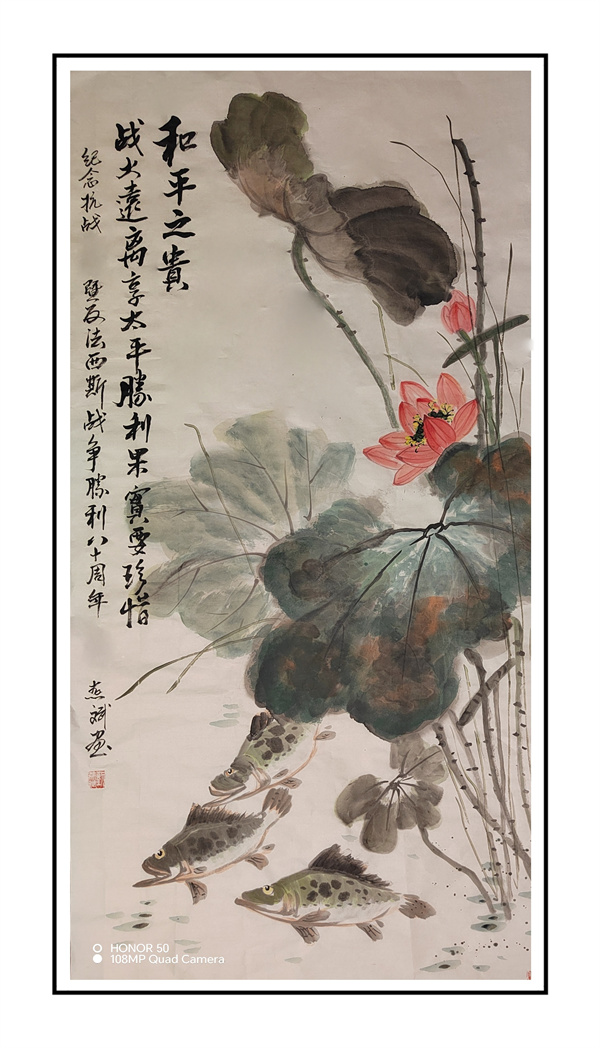 和平之貴
战火遠离享太平勝利果實要珍惜
纪念抗战
暨反法西斯战争勝利八十周年
志斌画
HONOR 50
108MP Quad Camera